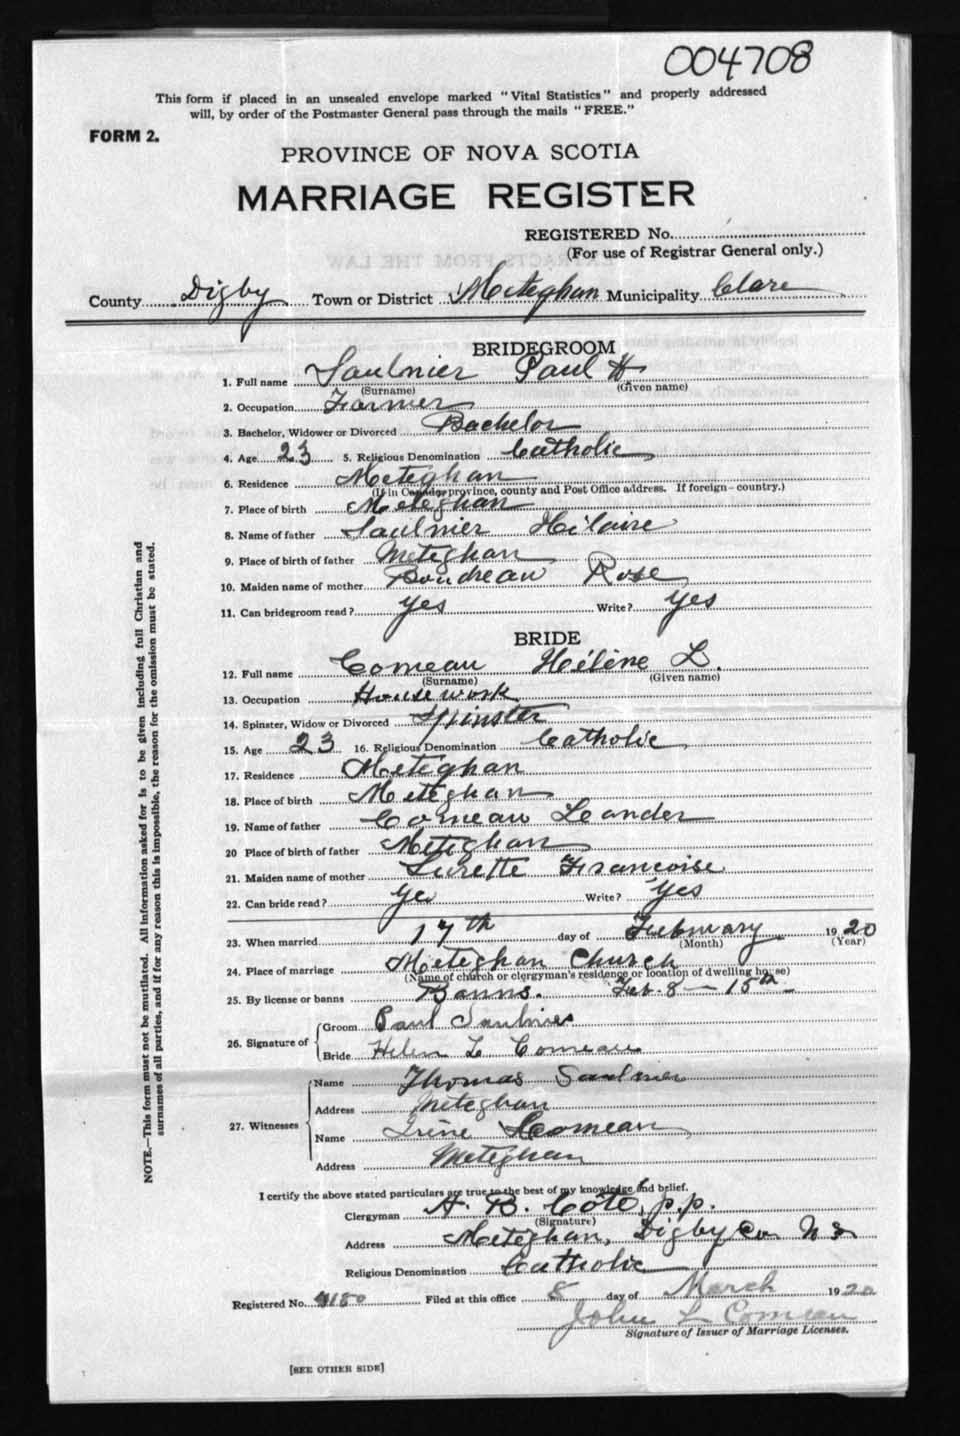 004708
This form if placed in an unsealed envelope marked "Vital Statistics" and properly addressed
will, by order of the Postmaster General pass through the mails "FREE."
FORM 2.
PROVINCE OF NOVA SCOTIA
MARRIAGE REGISTER
REGISTERED No.
(For use of Registrar General only.)
County Digby Town or District Meteghan Municipality Clare
BRIDEGROOM
1. Full name Saulnier Paul H
(Surname) (Given name)
2. Occupation Farmer
3. Bachelor, Widower or Divorced Bachelor
4. Age 23 5. Religious Denomination Catholic
6. Residence Meteghan
(If in Canada, province, county and Post Office address. If foreign - country.)
7. Place of birth Meteghan
8. Name of father Saulnier Hilaire
9. Place of birth of father Meteghan
10. Maiden name of mother Boudreau Rose
11. Can bridegroom read? yes Write? yes
BRIDE
12. Full name Comeau Hélène L.
(Surname) (Given name)
13. Occupation House work
14. Spinster, Widow or Divorced Spinster
15. Age 23 16. Religious Denomination Catholic
17. Residence Meteghan
18. Place of birth Meteghan
19. Name of father Comeau Leander
20 Place of birth of father Meteghan
21. Maiden name of mother Surette Francoise
22. Can bride read? yes Write? yes
23. When married 17th day of February 1920
(Month) (Year)
24. Place of marriage Meteghan Church
(Name of church or clergyman's residence or location of dwelling house)
25. By license or banns Banns. Feb. 8 - 15th
26. Signature of Groom Paul Saulnier
Bride Helen L Comeau
27. Witnesses Name Thomas Saulnier
Address Meteghan
Name Irène Comeau
Address Meteghan
I certify the above stated particulars are true to the best of my knowledge and belief.
Clergyman A. B. Côté, p.p.
(Signature)
Address Meteghan, Digby Co N S
Religious Denomination Catholic
Registered No. 4180 Filed at this office 8 day of March 1920
John L Comeau
Signature of Issuer of Marriage Licenses.
[SEE OTHER SIDE]
NOTE.—This form must not be mutilated. All information asked for is to be given including full Christian and
surnames of all parties, and if for any reason this is impossible, the reason for the omission must be stated.